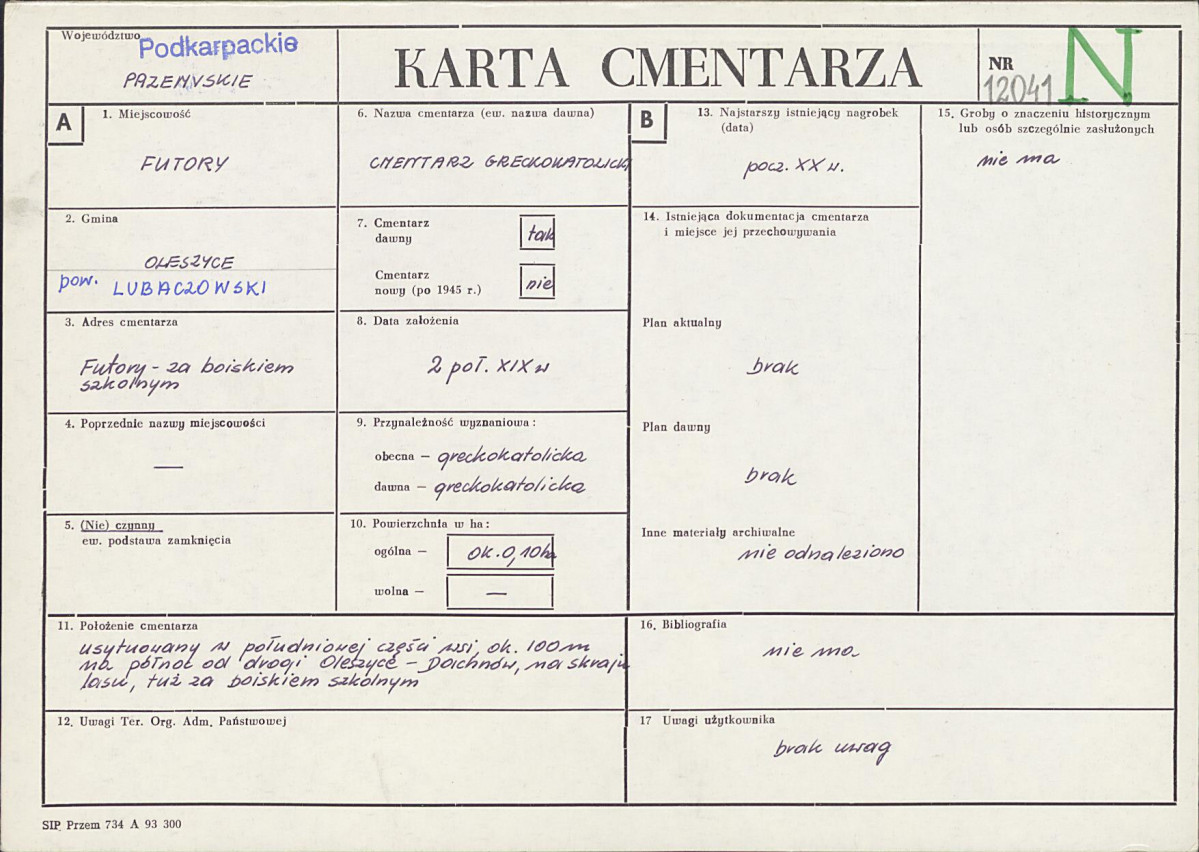 Województwo
Podkarpackie
PRZEMYSKIE
KARTA CMENTARZA
NR
12041
N
A
1. Miejscowość
FUTORY
2. Gmina
OLESZYCE
pow. LUBACZOWSKI
3. Adres cmentarza
Futory - za boiskiem
szkolnym
4. Poprzednie nazwy miejscowości
—
5. (Nie) czynny
ew. podstawa zamknięcia
6. Nazwa cmentarza (ew. nazwa dawna)
CMENTARZ GRECKOKATOLICKI
7. Cmentarz
dawny
tak
Cmentarz
nowy (po 1945 r.)
nie
8. Data założenia
2 poł. XIX w
9. Przynależność wyznaniowa:
obecna — greckokatolicka
dawna — greckokatolicka
10. Powierzchnia w ha:
ogólna — ok. 0,10ha
wolna — —
B
13. Najstarszy istniejący nagrobek
(data)
pocz. XX w.
14. Istniejąca dokumentacja cmentarza
i miejsce jej przechowywania
Plan aktualny
brak
Plan dawny
brak
Inne materiały archiwalne
nie odnaleziono
15. Groby o znaczeniu historycznym
lub osób szczególnie zasłużonych
nie ma
11. Położenie cmentarza
usytuowany w południowej części wsi, ok. 100m
na północ od drogi Oleszyce - Dachnów, na skraju
lasu, tuż za boiskiem szkolnym
12. Uwagi Ter. Org. Adm. Państwowej
16. Bibliografia
nie ma
17 Uwagi użytkownika
brak uwag
SIP. Przem 734 A 93 300